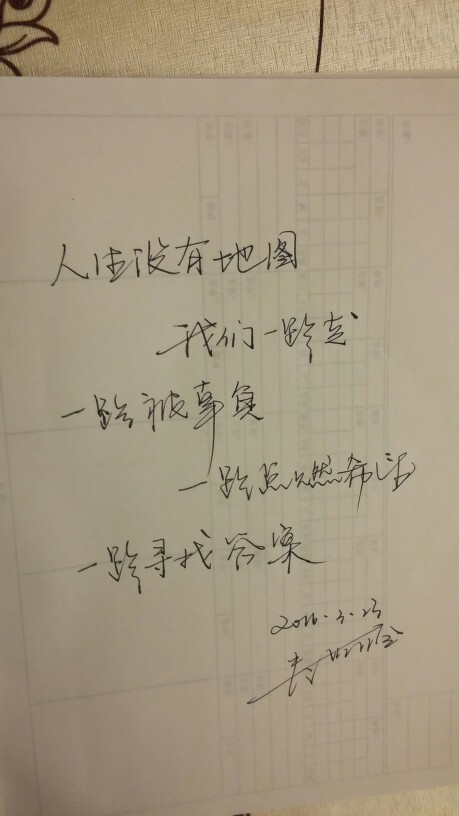 人生没有地图
我们一路走
一路被辜负
一路点燃希望
一路寻找答案
2016.3.23